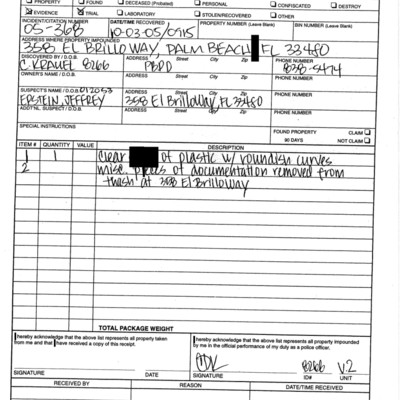 PROPERTY FOUND DECEASED (Probated) PERSONAL CONFISCATED DESTROY
EVIDENCE TRIAL LABORATORY STOLEN/RECOVERED OTHER
INCIDENT/CITATION NUMBER DATE/TIME RECOVERED PROPERTY NUMBER (Leave Blank) BIN NUMBER (Leave Blank)
05-368 10-03-05/0915
ADDRESS WHERE PROPERTY IMPOUNDED
358 El Brillo Way, Palm Beach FL 33480
DISCOVERED BY / D.O.B. ADDRESS Street City Zip PHONE NUMBER
8266 PBPD 838-5474
OWNER'S NAME / D.O.B. ADDRESS Street City Zip PHONE NUMBER
SUSPECT'S NAME / D.O.B. 012053 ADDRESS Street City Zip PHONE NUMBER
EPSTEIN, JEFFREY 358 El Brillo Way, FL 33480
ADDTNL. SUSPECT / D.O.B. ADDRESS Street City Zip PHONE NUMBER
SPECIAL INSTRUCTIONS
FOUND PROPERTY CLAIM
90 DAYS NOT CLAIM
ITEM # QUANTITY VALUE DESCRIPTION
1 1 clear of plastic w/ roundish curves
2 misc. pieces of documentation removed from
trash at 358 El Brillo Way
TOTAL PACKAGE WEIGHT
I hereby acknowledge that the above list represents all property taken
from me and that I have received a copy of this receipt.
I hereby acknowledge that the above list represents all property impounded
by me in the official performance of my duty as a police officer.
8266 V.2
SIGNATURE DATE SIGNATURE ID# UNIT
RECEIVED BY REASON DATE/TIME RECEIVED